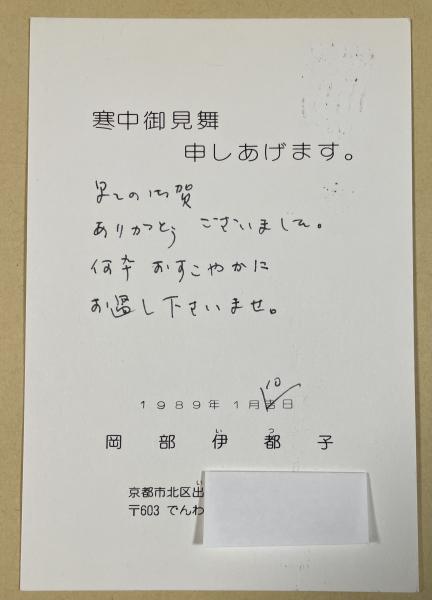 寒中御見舞
申しあげます。
早々の御賀
ありがとう ございました。
何卒 おすこやかに
お過し下さいませ。
10
1989年 1月吉日
い っ
岡部伊都子
い
京都市北区出
〒603 でんわ